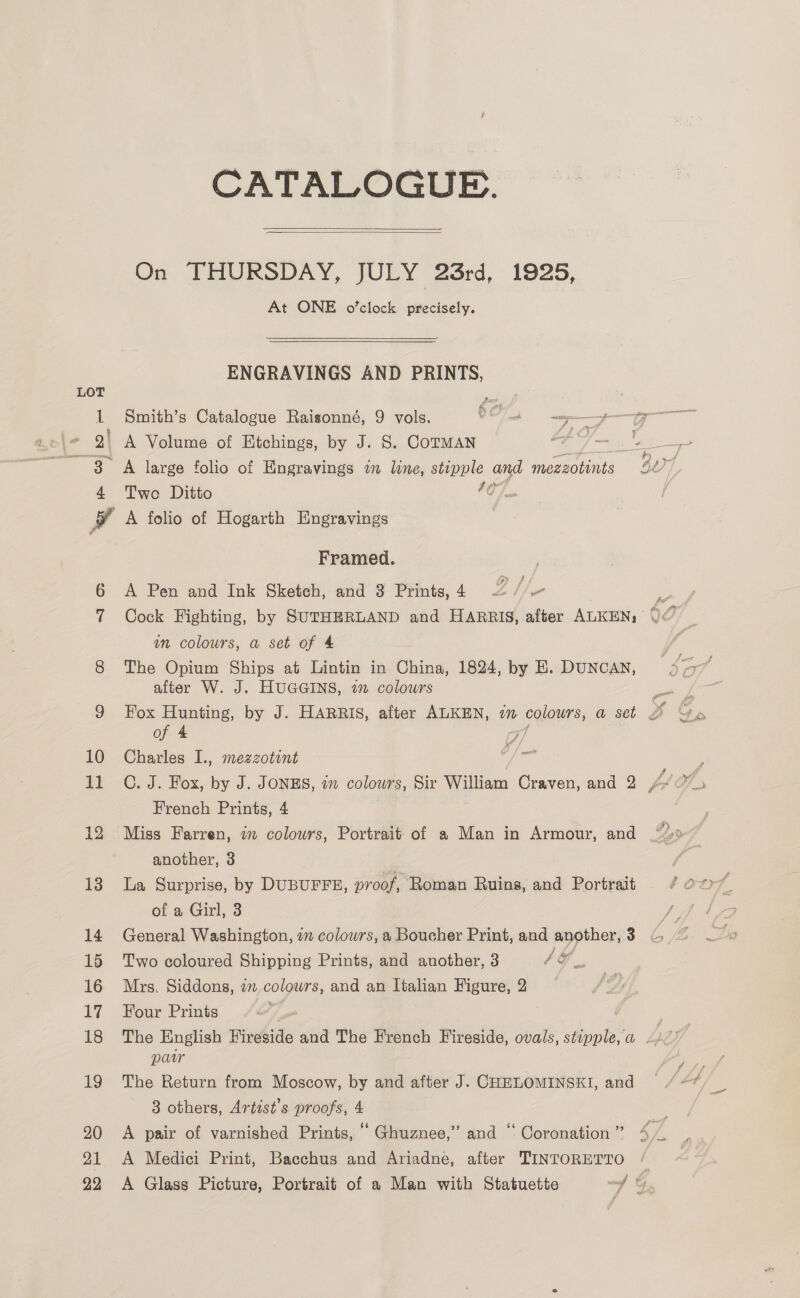 CATALOGUE.
On THURSDAY, JULY 23rd, 1925,
At ONE o'clock precisely.
ENGRAVINGS AND PRINTS,
LOT
1 Smith's Catalogue Raisonné, 9 vols.
2 A Volume of Etchings, by J. S. COTMAN
3 A large folio of Engravings in line, stipple and mezzotints
4 Two Ditto
5 A folio of Hogarth Engravings
Framed.
6 A Pen and Ink Sketch, and 3 Prints, 4
7 Cock Fighting, by SUTHERLAND and HARRIS, after ALKEN,
in colours, a set of 4
8 The Opium Ships at Lintin in China, 1824, by E. DUNCAN,
after W. J. HUGGINS, in colours
9 Fox Hunting, by J. HARRIS, after ALKEN, in colours, a set
of 4
10 Charles I., mezzotint
11 C. J. Fox, by J. JONES, in colours, Sir William Craven, and 2
French Prints, 4
12 Miss Farren, in colours, Portrait of a Man in Armour, and
another, 3
13 La Surprise, by DUBUFFE, proof, Roman Ruins, and Portrait
of a Girl, 3
14 General Washington, in colours, a Boucher Print, and another, 3
15 Two coloured Shipping Prints, and another, 3
16 Mrs. Siddons, in colours, and an Italian Figure, 2
17 Four Prints
18 The English Fireside and The French Fireside, ovals, stipple, a
pair
19 The Return from Moscow, by and after J. CHELOMINSKI, and
3 others, Artist's proofs, 4
20 A pair of varnished Prints, "Ghuznee," and "Coronation"
21 A Medici Print, Bacchus and Ariadne, after TINTORETTO
22 A Glass Picture, Portrait of a Man with Statuette